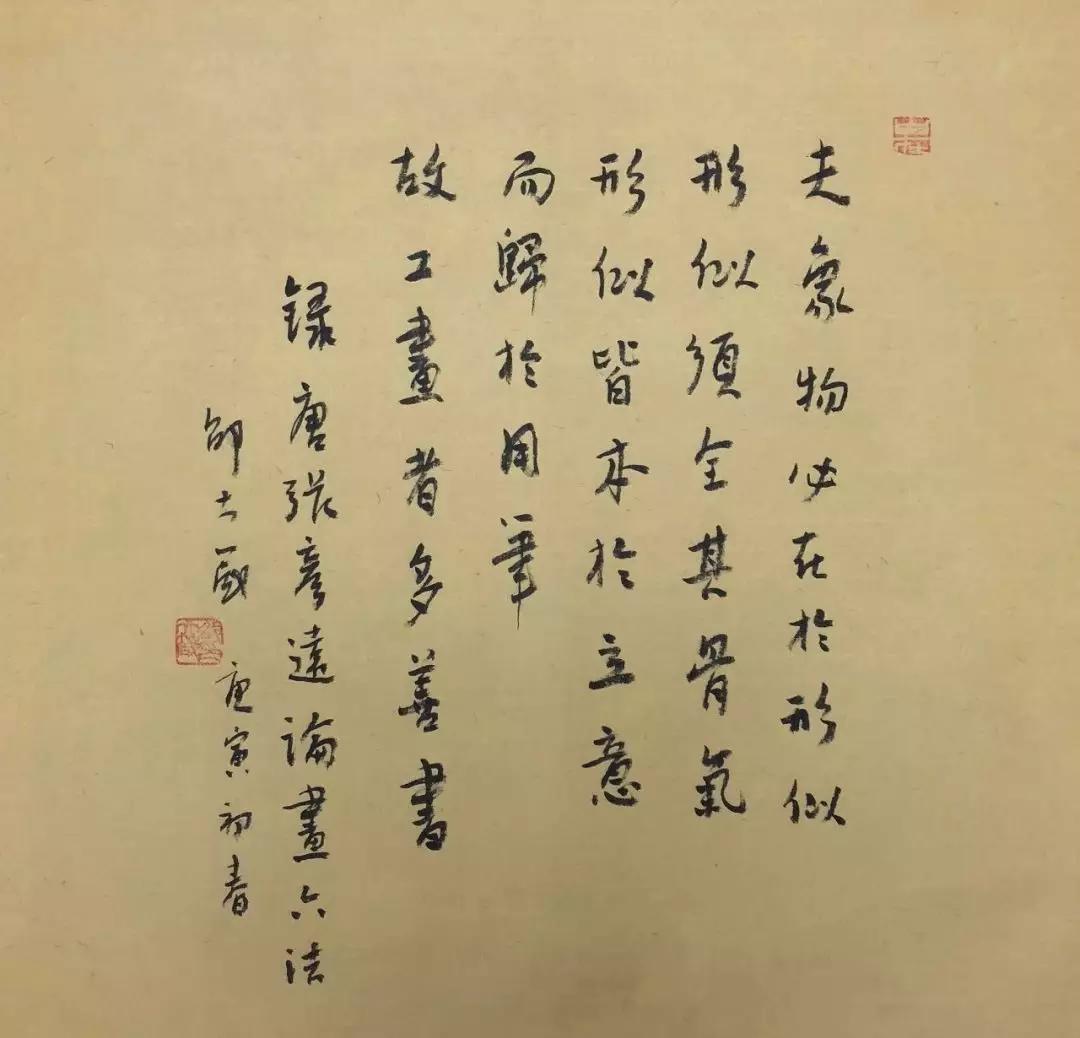 夫象物必在於形似
形似須全其骨氣
形似皆本於立意
而歸於用筆
故工畫者多善書
録唐張彦遠論畫六法
邵大箴 庚寅初春